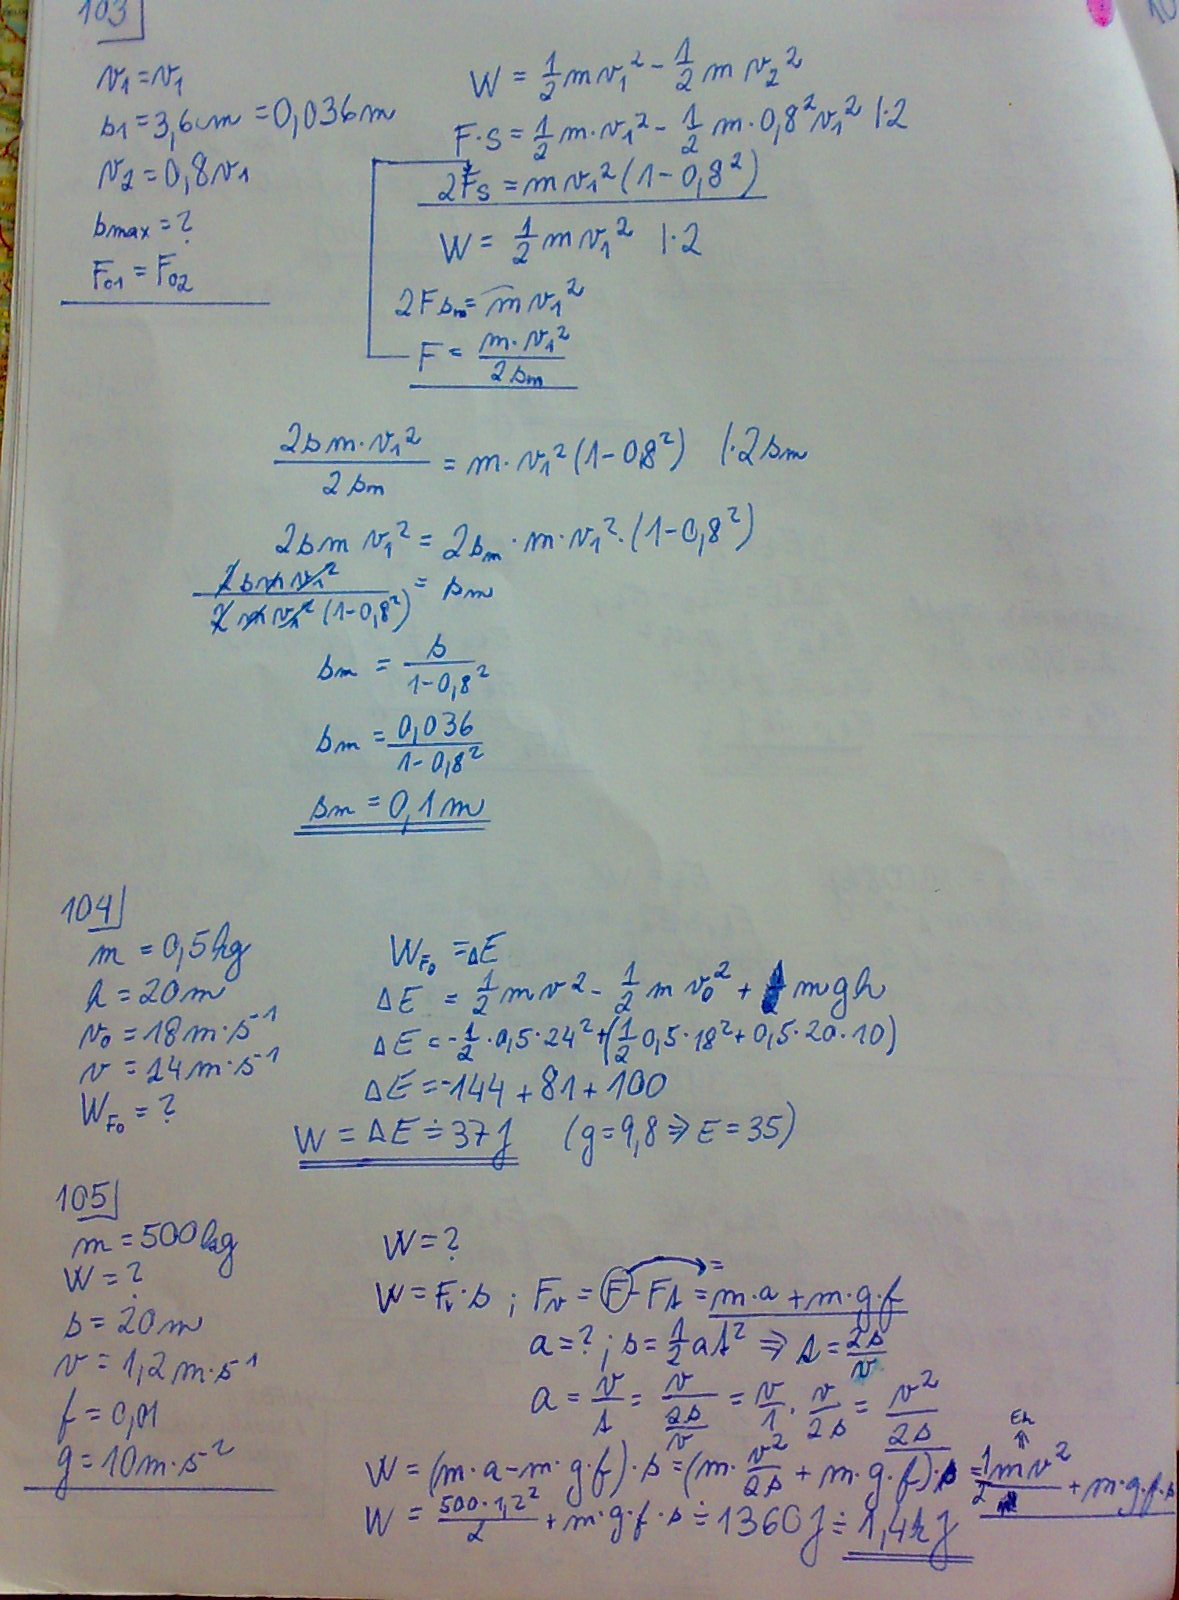 103
v₁ = v₁
s₁ = 3,6cm = 0,036m
v₂ = 0,8v₁
smax = ?
F₀₁ = F₀₂
W = 1/2 m v₁² - 1/2 m v₂²
F·s = 1/2 m·v₁² - 1/2 m·0,8²v₁² |·2
2Fs = m v₁² (1-0,8²)
W = 1/2 m v₁² |·2
2F sₘ = m v₁²
F = m·v₁² / 2sₘ
2sm·v₁² / 2sₘ = m·v₁² (1-0,8²) |·2sₘ
2sm v₁² = 2sₘ·m·v₁²·(1-0,8²)
2smv₁² / 2mv₁²(1-0,8²) = sₘ
sₘ = s / 1-0,8²
sₘ = 0,036 / 1-0,8²
sₘ = 0,1m
104
m = 0,5kg
h = 20m
v₀ = 18m·s⁻¹
v = 24m·s⁻¹
W_F₀ = ?
W_F₀ = ΔE
ΔE = 1/2 m v² - 1/2 m v₀² + mgh
ΔE = -1/2·0,5·24² + (1/2 0,5·18² + 0,5·20·10)
ΔE = -144 + 81 + 100
W = ΔE ≐ 37J (g = 9,8 ⇒ E = 35)
105
m = 500kg
W = ?
s = 20m
v = 1,2m·s⁻¹
f = 0,01
g = 10m·s⁻²
W = ?
W = Fᵥ·s ; Fᵥ = F - Ft = = m·a + m·g·f
a = ? ; s = 1/2 at² ⇒ t = 2s/v
a = v/t = v / (2s/v) = v/1 · v/2s = v²/2s
W = (m·a - m·g·f)·s = (m·v²/2s + m·g·f)·s = 1/2 mv² + m·g·f·s
Ek
⇑
W = 500·1,2² / 2 + m·g·f·s ≐ 1360J ≐ 1,4kJ